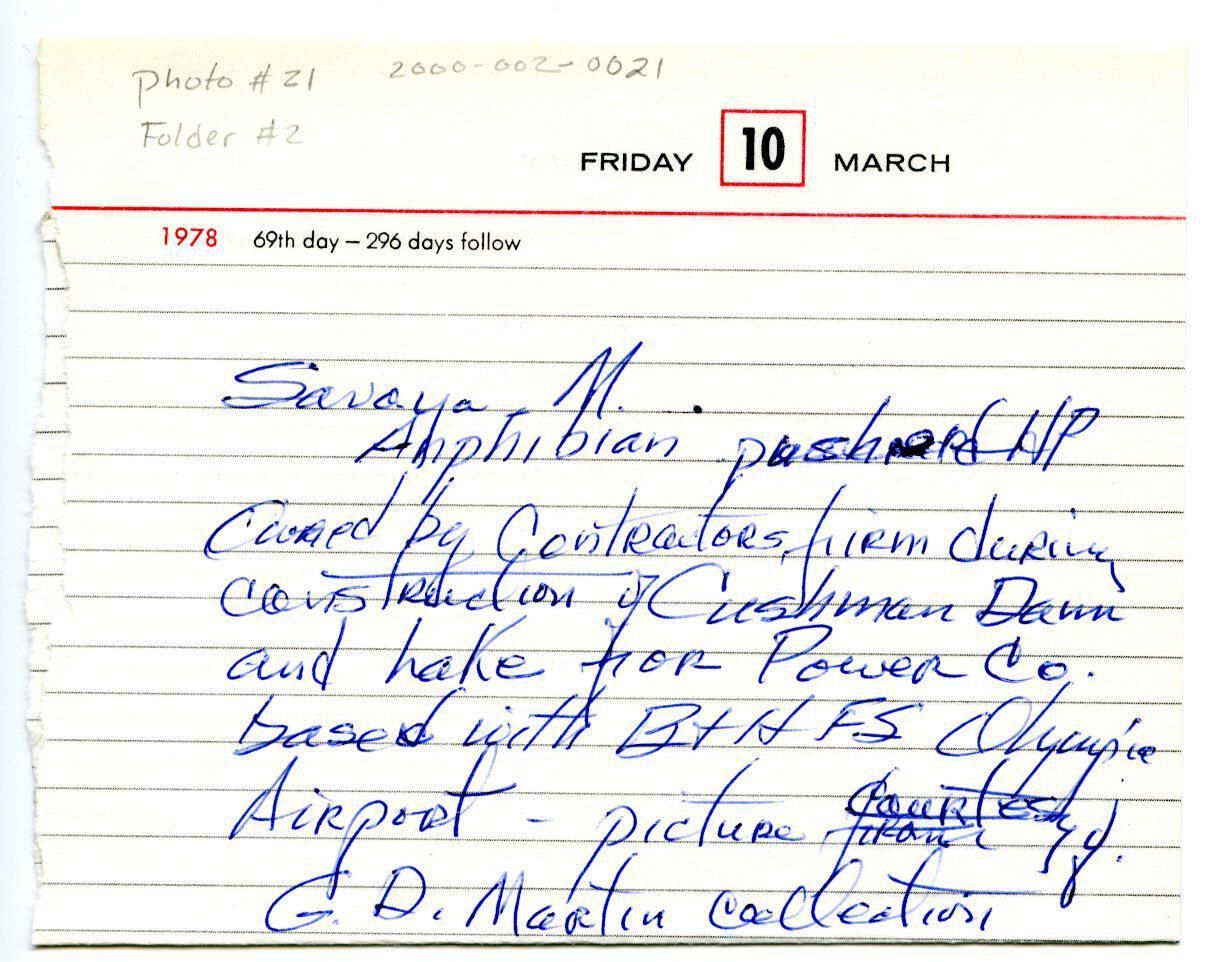 Photo #21 2000-002-0021
Folder #2
FRIDAY 10 MARCH
1978 69th day – 296 days follow
Savoya M.
Amphibian HP
Owned by Contractors firm during
construction of Cushman Damn
and Lake for Power Co.
based with B+H FS Olympia
Airport - picture courtesy of
G. D. Martin collection